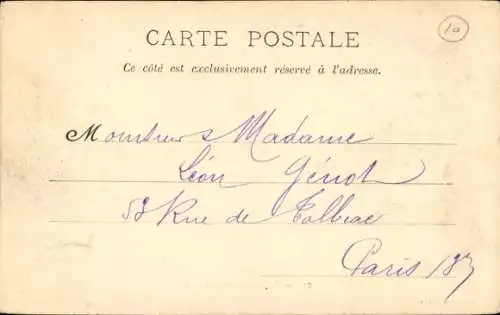 CARTE POSTALE
Ce côté est exclusivement réservé à l'adresse.
Monsieur & Madame
Léon Génot
53 Rue de Tolbiac
Paris 13
10